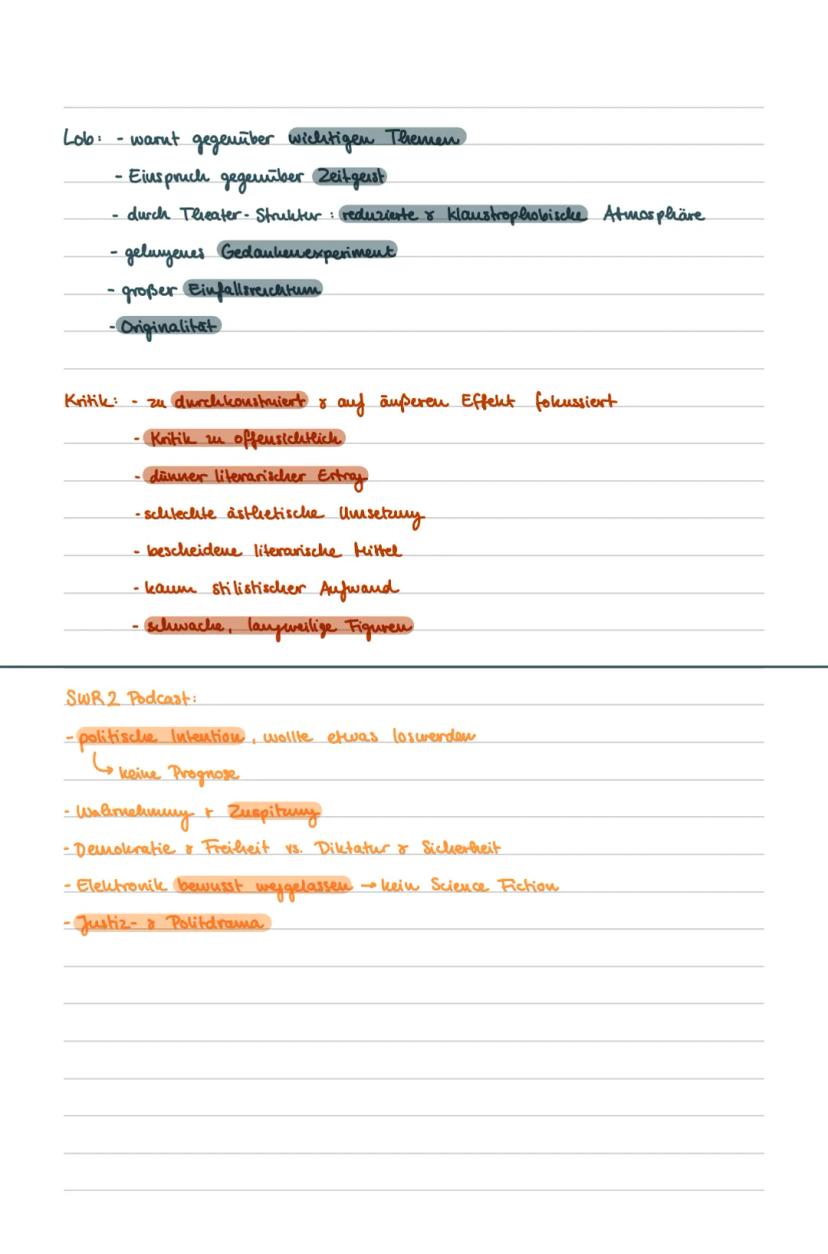 Lob: - warnt gegenüber wichtigen Themen
- Einspruch gegenüber Zeitgeist
- durch Theater-Struktur: reduzierte & klaustrophobische Atmosphäre
- gelungenes Gedankenexperiment
- großer Einfallsreichtum
- Originalität
Kritik: - zu durchkonstruiert & auf äußeren Effekt fokussiert
- Kritik zu offensichtlich
- dünner literarischer Ertrag
- schlechte ästhetische Umsetzung
- bescheidene literarische Mittel
- kaum stilistischer Aufwand
- schwache, langweilige Figuren
SWR2 Podcast:
- politische Intention, wollte etwas loswerden
↳ keine Prognose
- Wahrnehmung & Zuspitzung
- Demokratie & Freiheit vs. Diktatur & Sicherheit
- Elektronik bewusst weggelassen → kein Science Fiction
- Justiz- & Politdrama